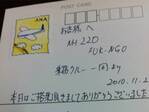 POST CARD
ANA
お客様へ
NH 220
FUK-NGO
乗務クルー 一同より
2010.11.2
本日はご搭乗頂きましてありがとうございました